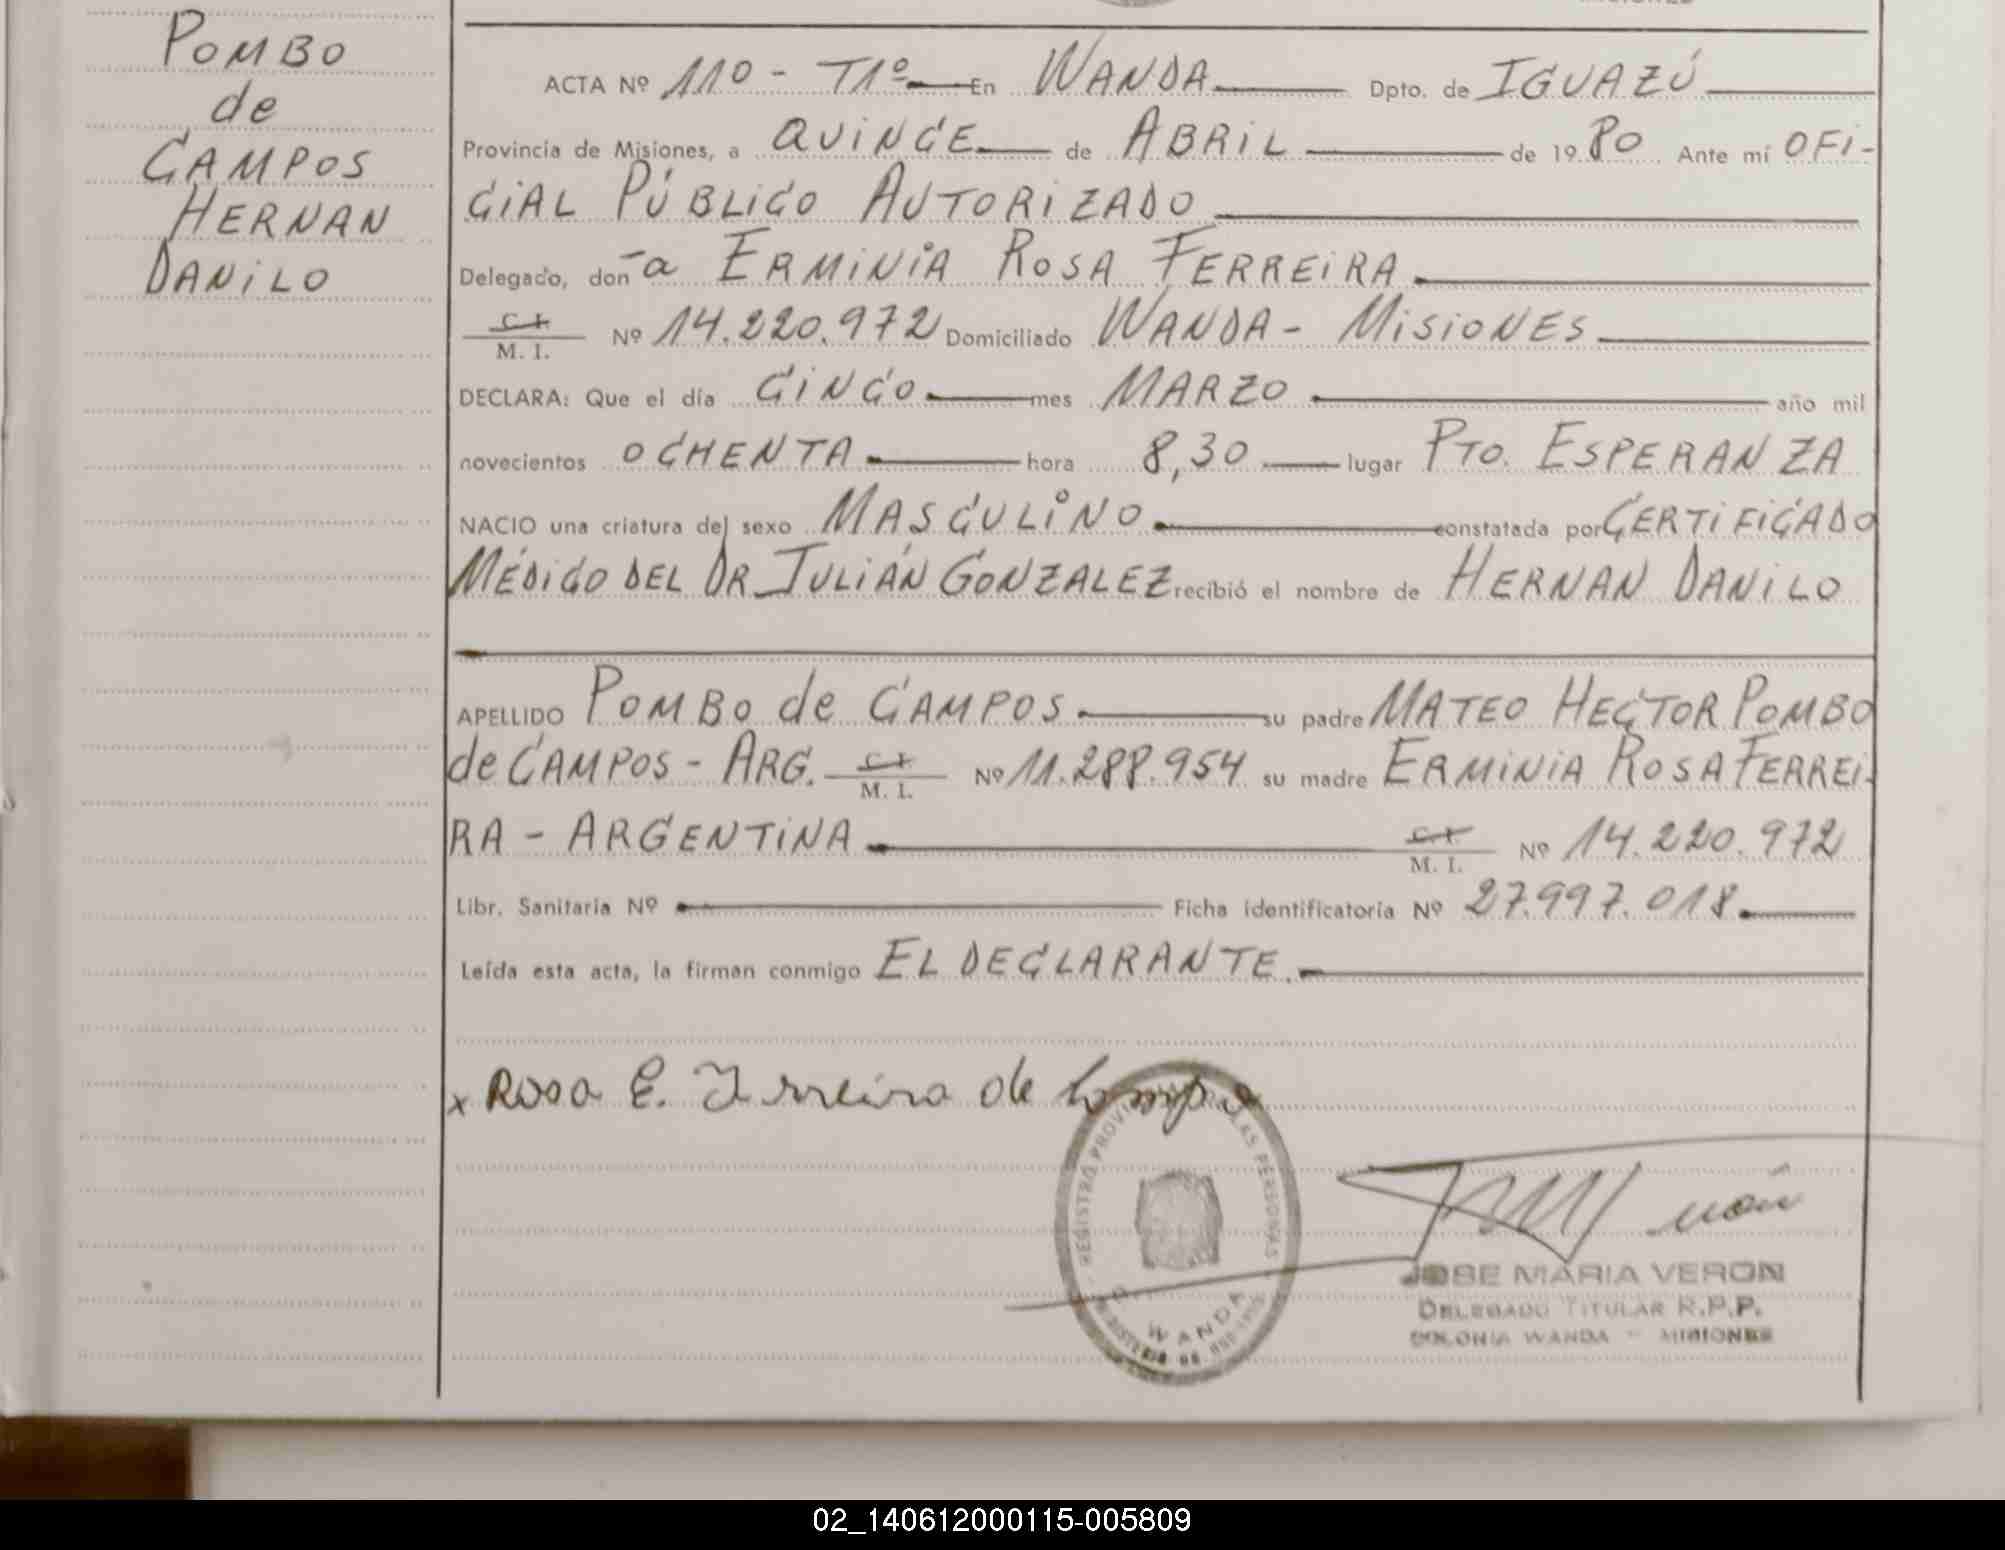 POMBO
de
CAMPOS
HERNAN
DANILO
ACTA Nº 110 - T1º En WANDA Dpto. de IGUAZÚ
Provincia de Misiones, a QUINCE de ABRIL de 1980 Ante mí OFI-
CIAL PÚBLICO AUTORIZADO
Delegado, don-a ERMINIA ROSA FERREIRA
C I
M. I. Nº 14.220.972 Domiciliado WANDA - MISIONES
DECLARA: Que el día CINCO mes MARZO año mil
novecientos OCHENTA hora 8,30 lugar PTO. ESPERANZA
NACIO una criatura del sexo MASCULINO constatada por CERTIFICADO
MÉDICO DEL DR JULIÁN GONZALEZ recibió el nombre de HERNAN DANILO
APELLIDO POMBO de CAMPOS su padre MATEO HECTOR POMBO
de CAMPOS - ARG. C I M. I. Nº 11.288.954 su madre ERMINIA ROSA FERREI-
RA - ARGENTINA C I M. I. Nº 14.220.972
Libr. Sanitaria Nº Ficha identificatoria Nº 27.997.018
Leída esta acta, la firman conmigo EL DECLARANTE.
x Rosa E. Ferreira de Campo
REGISTRO PROVI LAS PERSONAS
WANDA
JOSE MARIA VERON
DELEGADO TITULAR R.P.P.
COLONIA WANDA - MISIONES
02_140612000115-005809